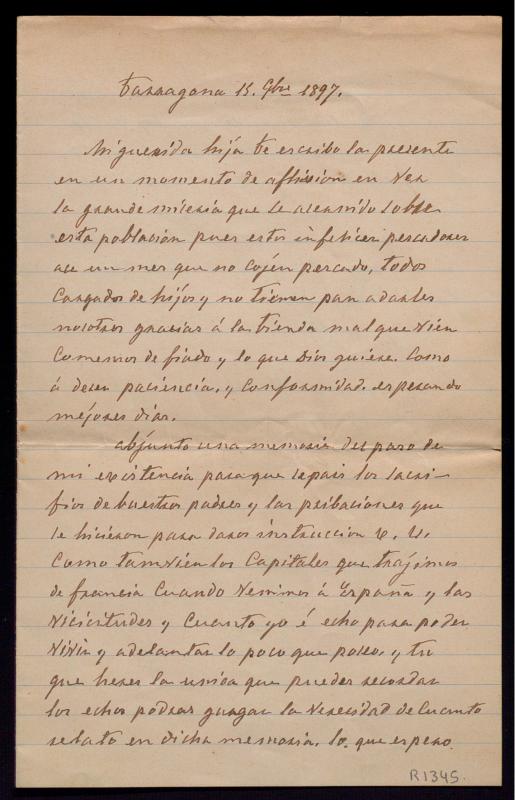 Tarragona 15. 9bre 1897.
Mi querida hija te escribo la presente
en un momento de aflision en ver
la grande miseria que se a cernido sobre
esta poblacion pues estos infelices pescadores
ace un mes que no cojen pescado, todos
cargados de hijos y no tienen pan a darles
nosotros gracias á la tienda mal que vien
comemos de fiado y lo que Dios quiere. Como
á decer paciencia, y conformidad. esperando
mejores dias.
abjunto una memoria del paso de
mi existencia para que sepais los sacri-
fios de buestros padres y las pribaciones que
se hicieron para daros instruccion v. v.
Como tamvien los Capitales que trajimos
de francia Cuando venimos á España y las
vicicitudes y Cuanto yo é echo para poder
vivir y adelantar lo poco que poseo, y tu
que heres la unica que puedes recordar
los echos podras guzgar la veracidad de Cuanto
relato en dicha memoria. lo que espero
R1345.